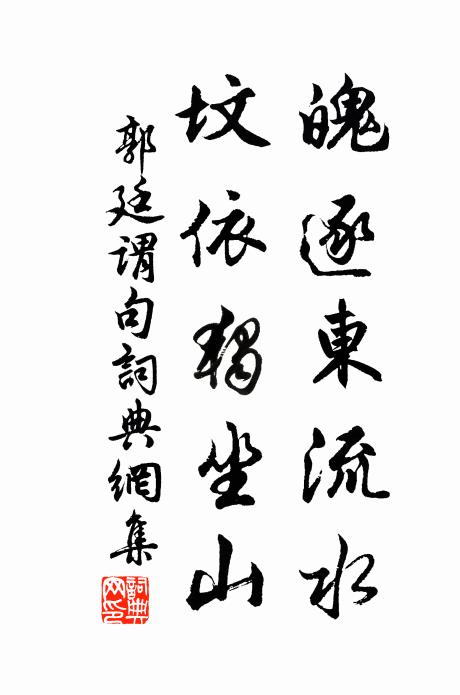 魄逐東流水
墳依獨坐山
郭廷謂句詞典網集
詞典網印